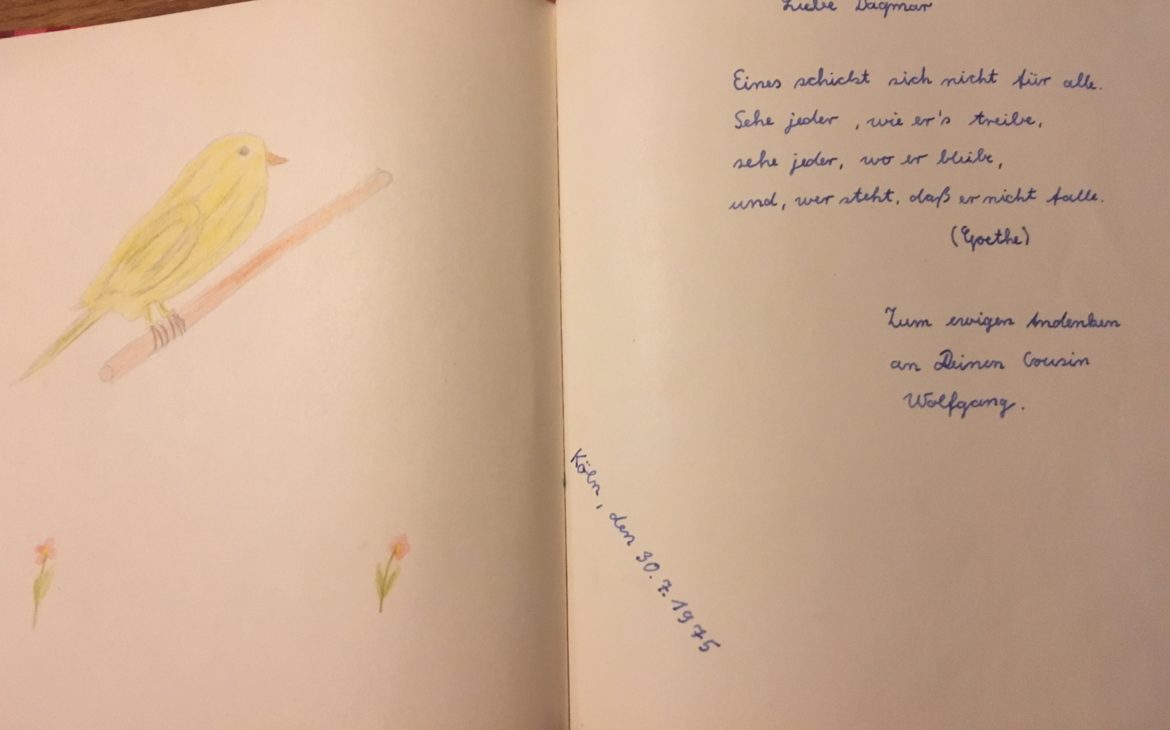 Liebe Dagmar
Eines schickt sich nicht für alle.
Sehe jeder, wie er's treibe,
sehe jeder, wo er bleibe,
und, wer steht, daß er nicht falle.
(Goethe)
Zum ewigen Andenken
an Deinen Cousin
Wolfgang.
Köln, den 30.7.1975